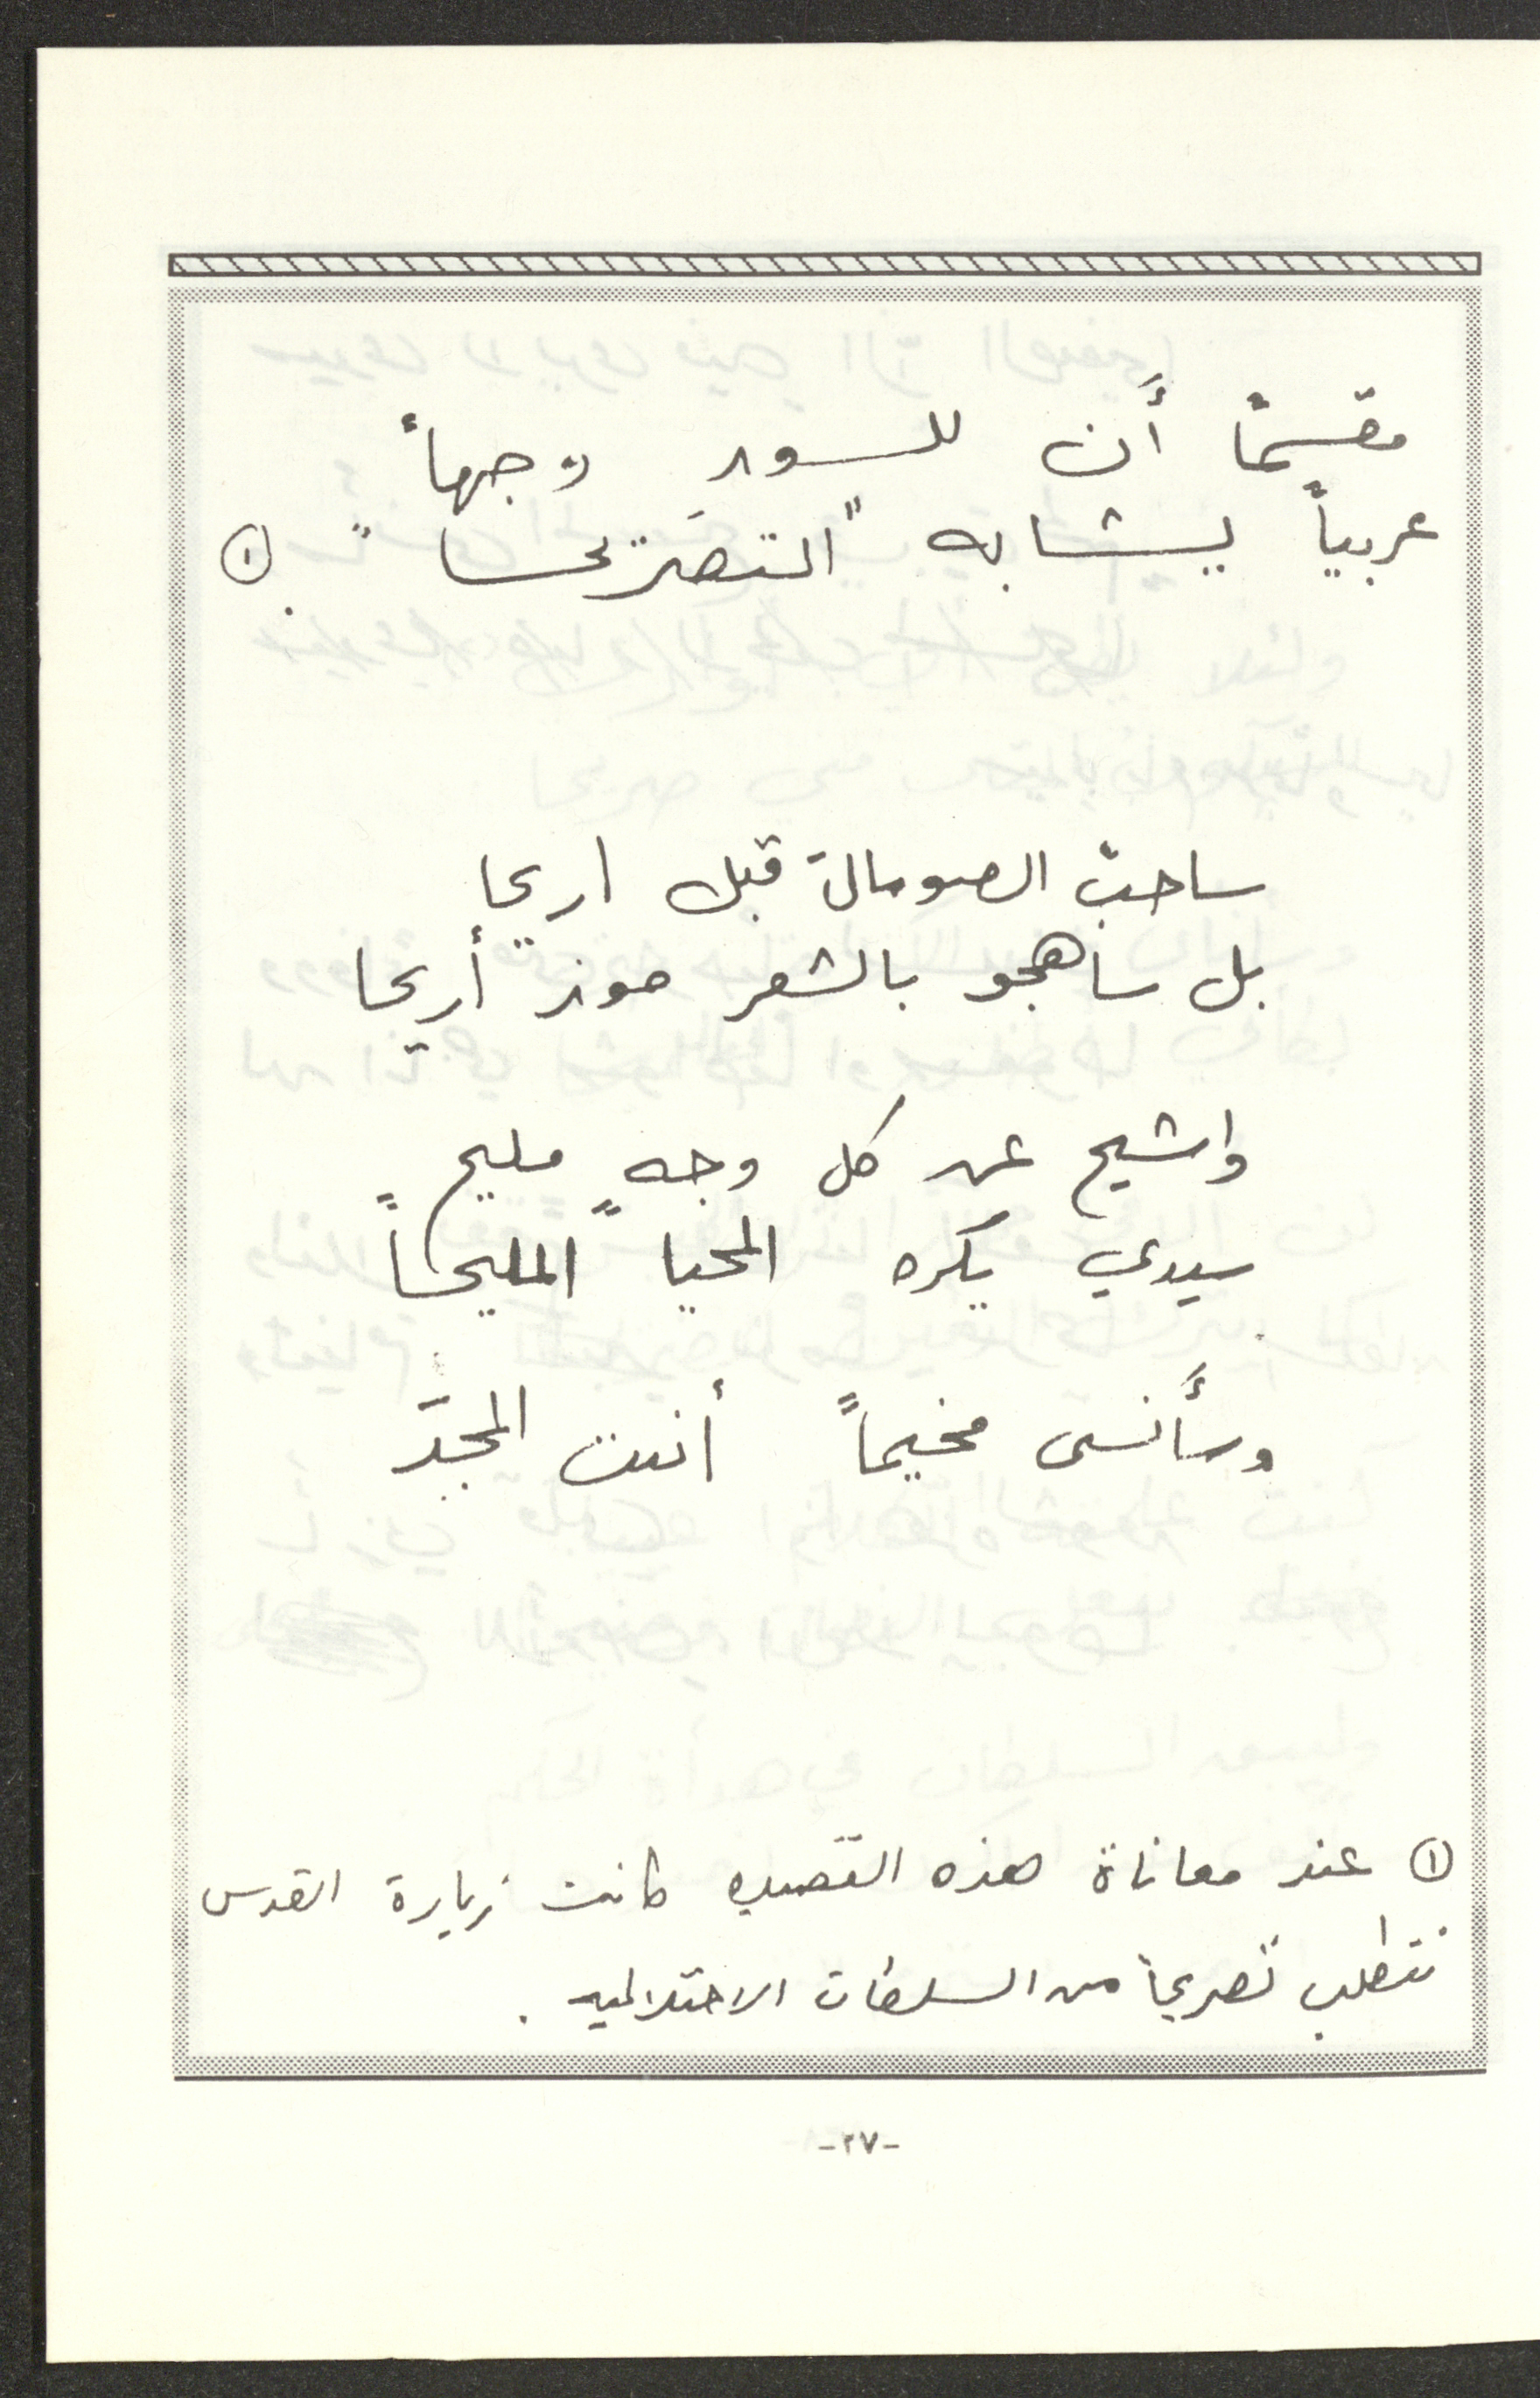 مقسماً أَن للسور وجهاً
عربياً يشابه "التصريحا" . ①
ساحبّ الصومال قبل اريحا
بل ساهجو بالشعر موز أريحا
واشيح عن كل وجهٍ مليحٍ
سيدي يكره المحيا المليحا
وسأَنسى مخيماً أنبت المجدَ
① عند معاناة هذه القصيده كانت زيارة القدس
تتطلب تصريحاً من السلطات الاحتلاليه .
-٢٧-